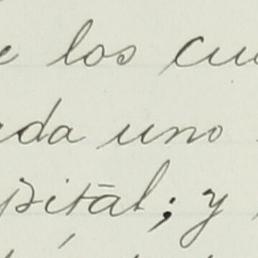 los cu
ada uno
pital; y